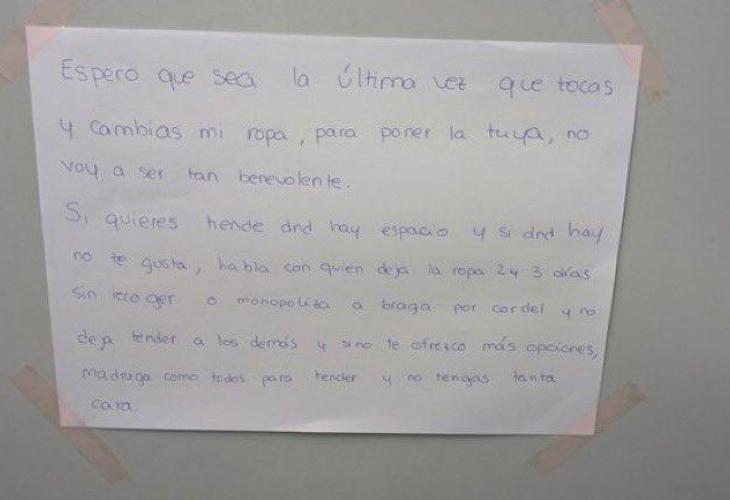 Espero que sea la última vez que tocas
y cambias mi ropa, para poner la tuya, no
voy a ser tan benevolente.
Si quieres tiende dnd hay espacio y si dnd hay
no te gusta, habla con quien deja la ropa 2 y 3 días
sin recoger o monopoliza a braga por cordel y no
deja tender a los demás y sino te ofrezco más opciones,
madruga como todos para tender y no tengas tanta
cara.